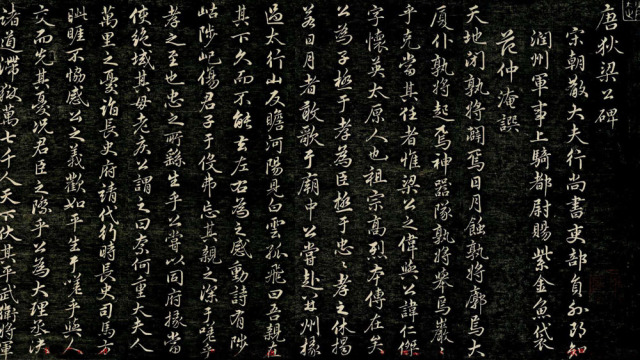 唐狄梁公碑
宋朝散大夫行尚書吏部員外郎知
潤州軍事上騎都尉賜紫金魚袋
范仲淹譔
天地閉孰將闢焉日月蝕孰將廓焉大
厦仆孰將起焉神器墜孰將舉焉巖巖
乎克當其任者惟梁公之偉歟公諱仁傑
字懷英太原人也祖宗高烈本傳在矣
公為子極于孝為臣極于忠忠孝之休揭
若日月者敢歌于廟中公嘗赴并州掾
過太行山反瞻河陽見白雲孤飛曰吾親在
其下久而不能去左右為之感動詩有陟
岵陟屺傷君子于役弗忘其親之深于嗟乎
孝之至也忠之所繇生乎公嘗以同府掾當
使絶域其母老疾公謂之曰奈何重太夫人
萬里之憂詣長史府請代行時長史司馬方
眦睚不協感公之義歡如平生于嗟乎與人
交而先其憂況君臣之際乎公為大理丞決
諸道滯獄萬七千人天下伏其平武衛將軍